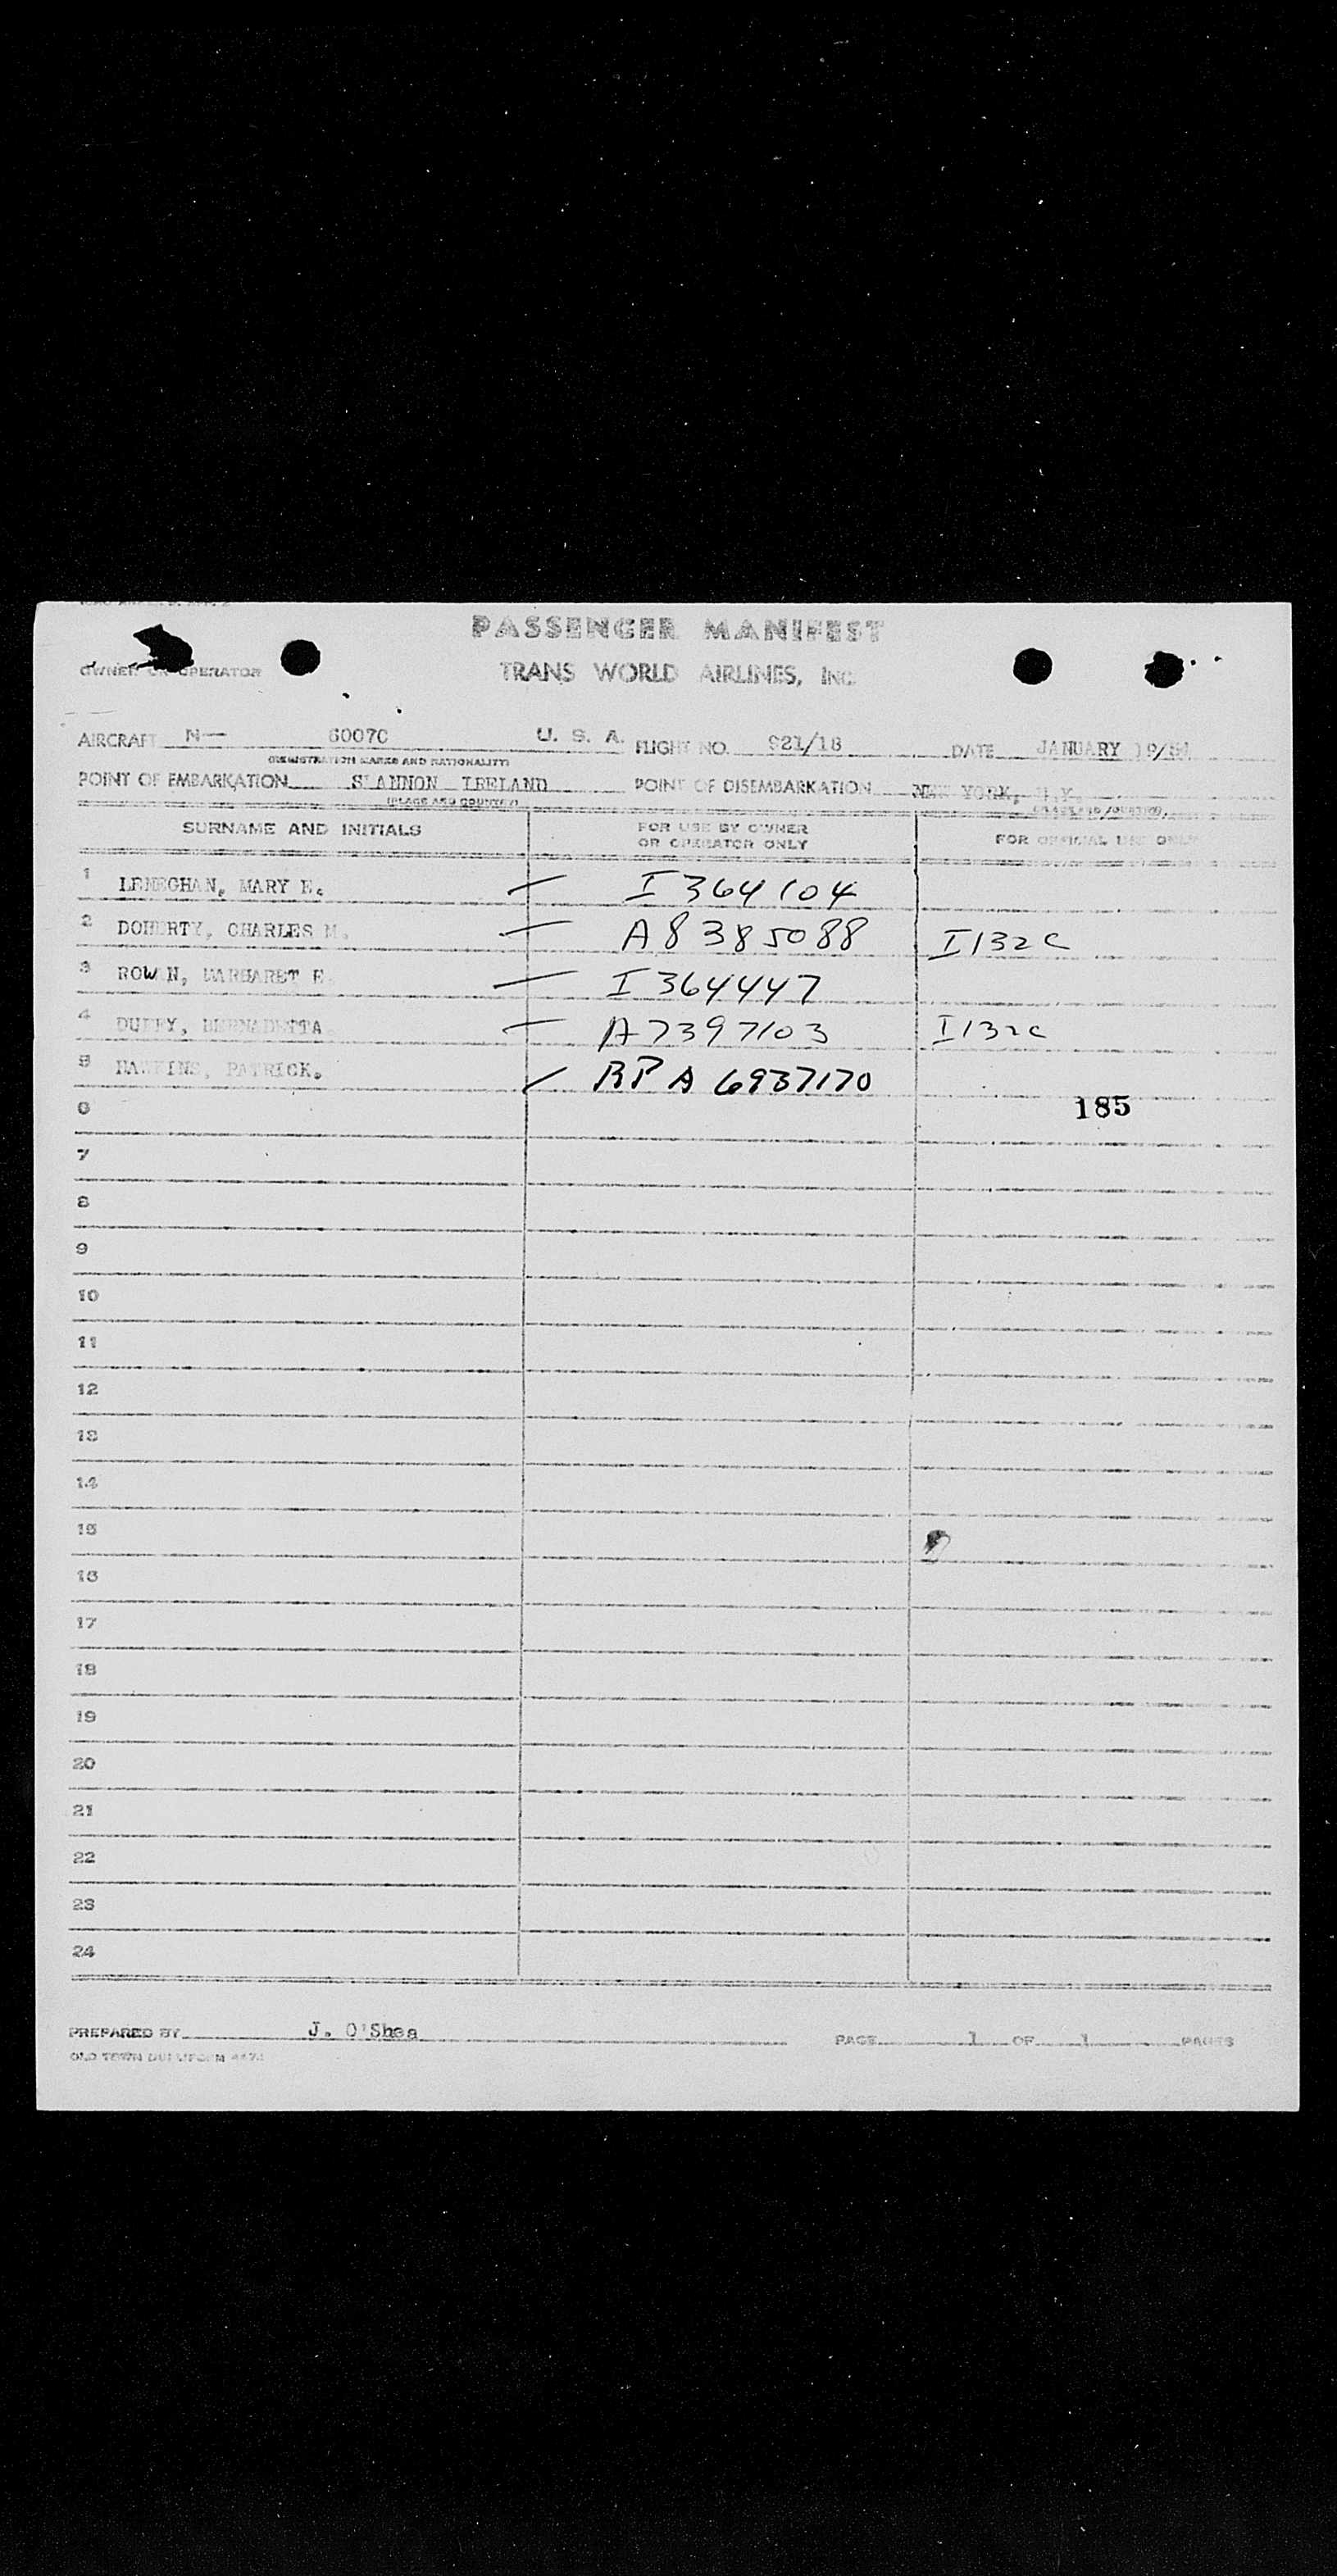 PASSENGER MANIFEST
OWNER OR OPERATOR TRANS WORLD AIRLINES, INC.
AIRCRAFT N— 6007C U. S. A. FLIGHT NO. 921/18 DATE JANUARY 19/54
(REGISTRATION MARKS AND NATIONALITY)
POINT OF EMBARKATION SHANNON IRELAND POINT OF DISEMBARKATION NEW YORK, N.Y.
(PLACE AND COUNTRY) (PLACE AND COUNTRY)
SURNAME AND INITIALS FOR USE BY OWNER OR OPERATOR ONLY FOR OFFICIAL USE ONLY
1 LENEGHAN, MARY E. — I 364104
2 DOHERTY, CHARLES M. — A8385088 I132C
3 ROWAN, MARGARET E. — I 364447
4 DUFFY, BERNADETTA. — A7397103 I132C
5 HAWKINS, PATRICK. ✓ RP A 6937170
6 185
7
8
9
10
11
12
13
14
15
16
17
18
19
20
21
22
23
24
PREPARED BY J. O'Shea PAGE 1 OF 1 PAGES
OLD TOWN